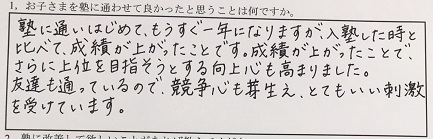 1，お子さまを塾に通わせて良かったと思うことは何ですか。
塾に通いはじめて、もうすぐ一年になりますが、入塾した時と
比べて、成績が上がったことです。成績が上がったことで、
さらに上位を目指そうとする向上心も高まりました。
友達も通っているので、競争心も芽生え、とてもいい刺激
を受けています。